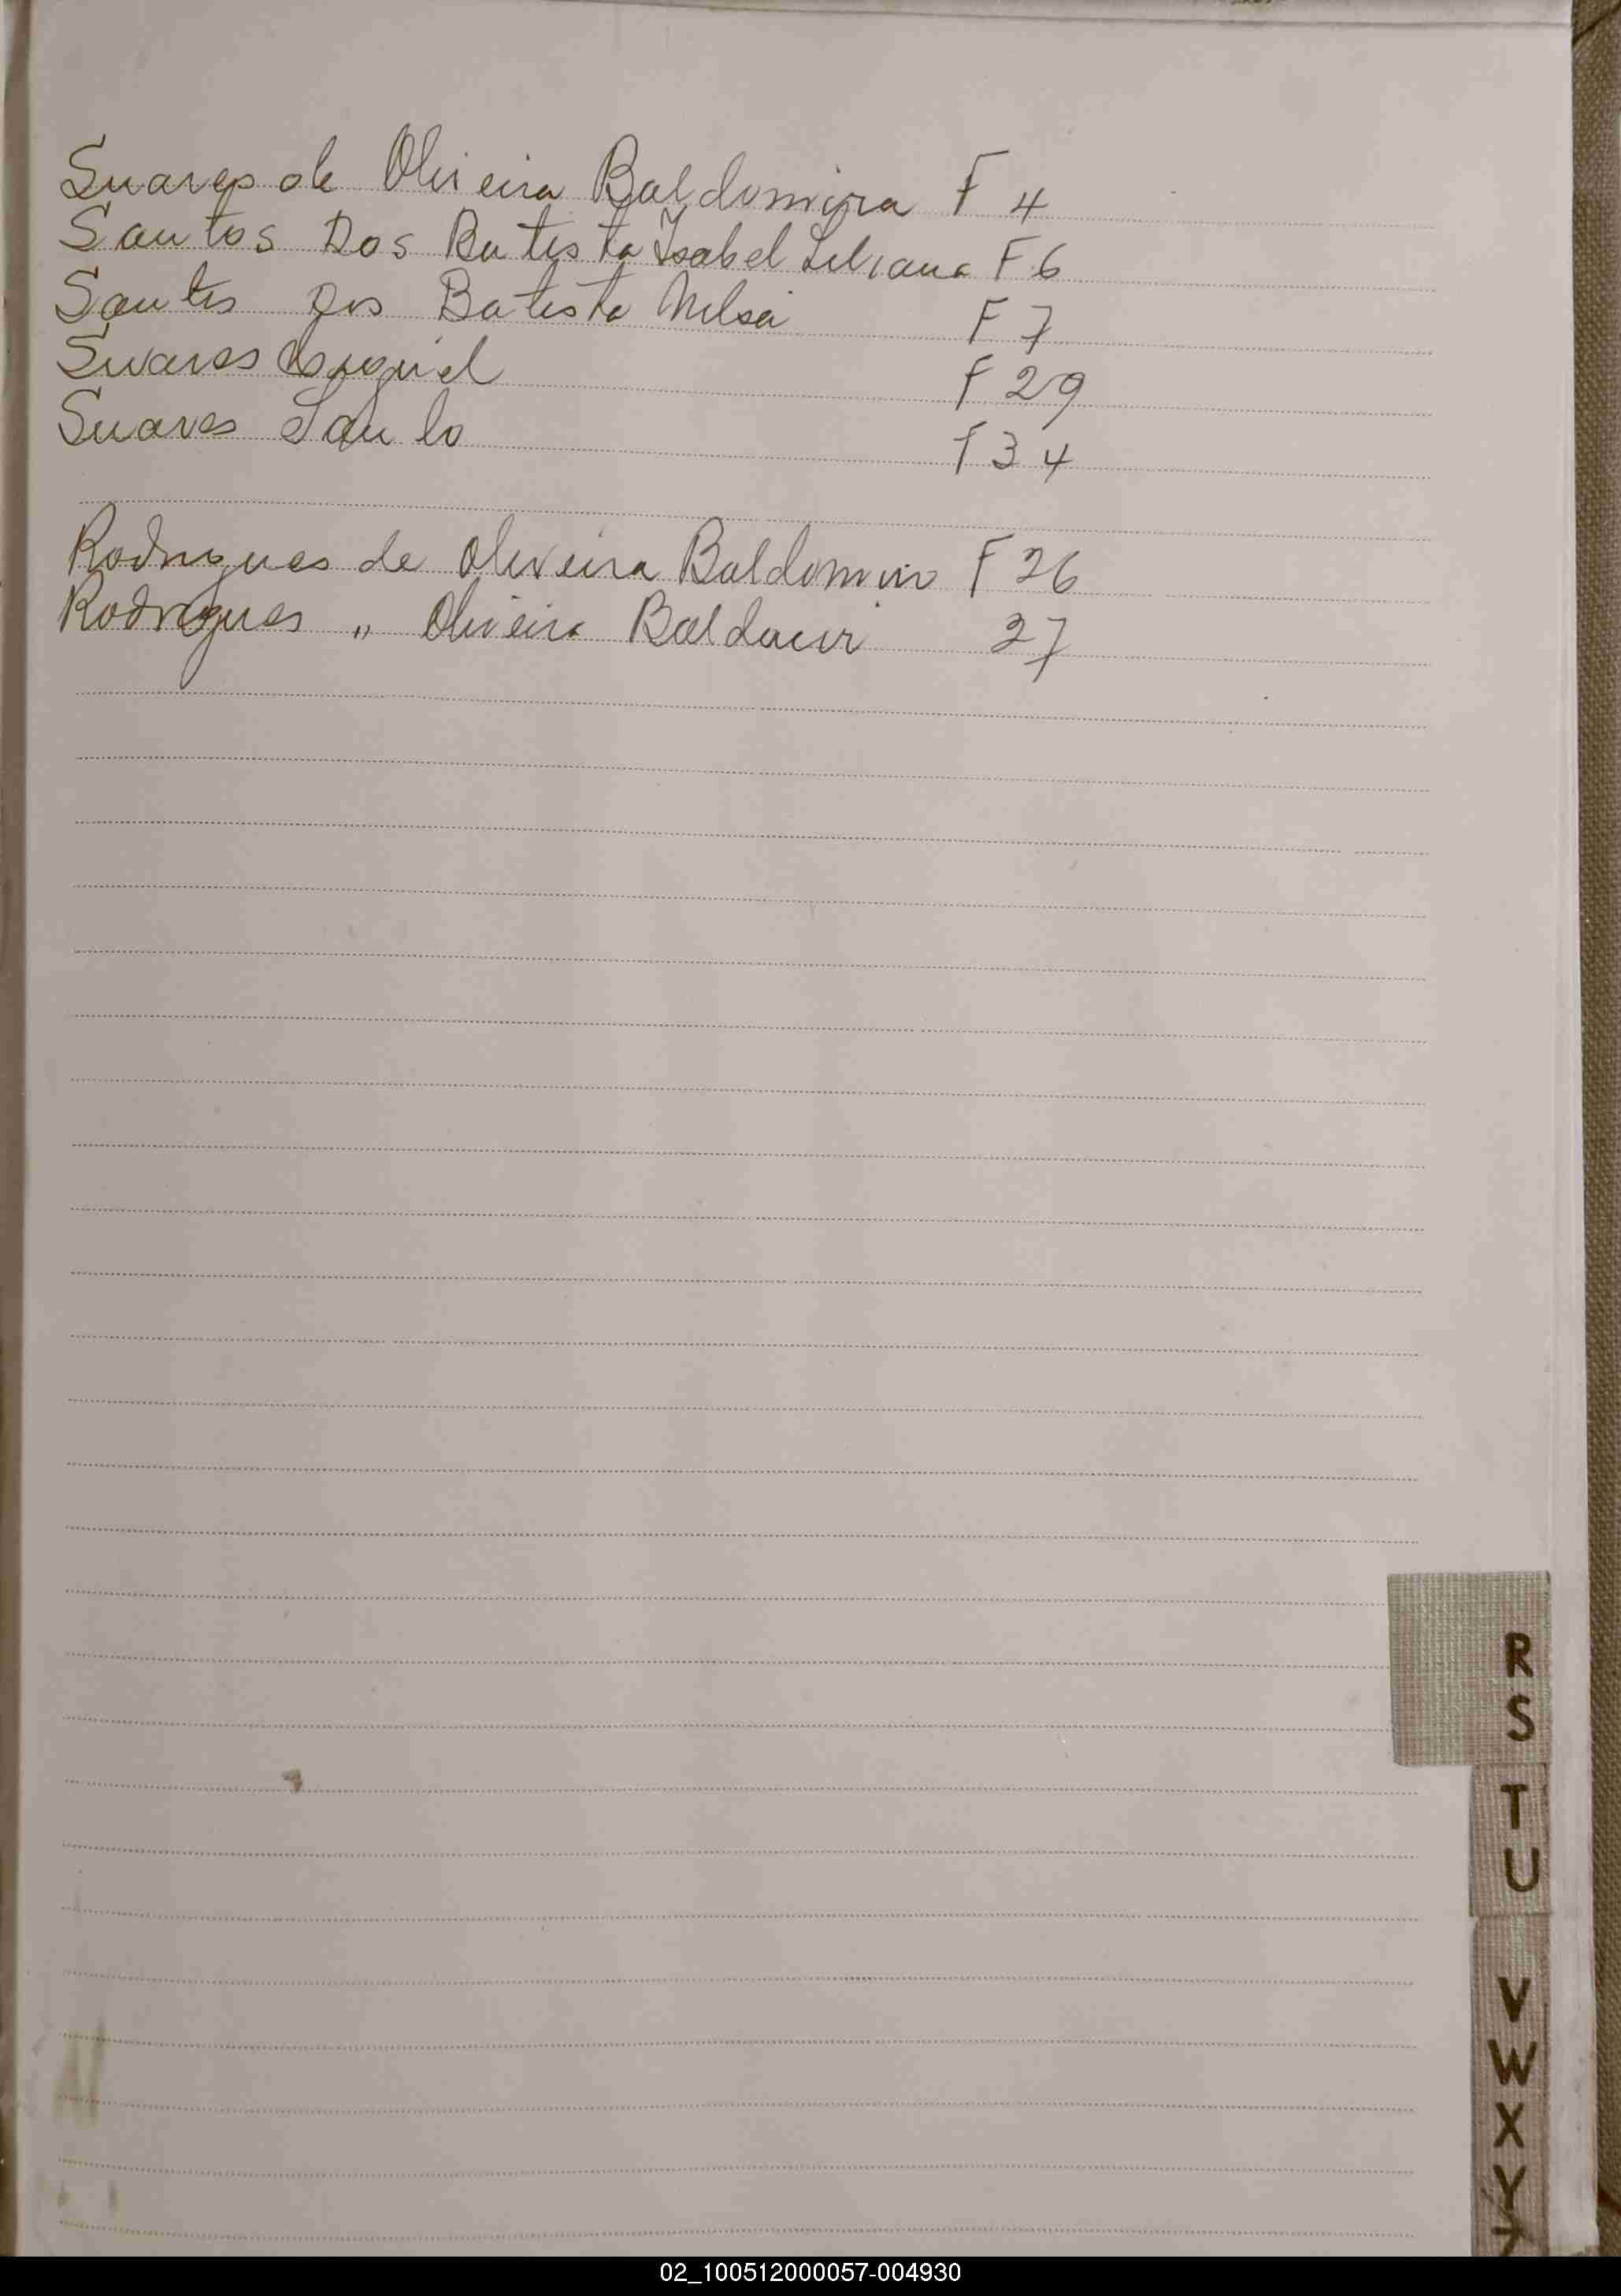 Suares de Oliveira Baldomira F 4
Santos Dos Batista Isabel Liliana F 6
Santos Dos Batista Nelsa F 7
Suares F 29
Suares Saulo F 34
Rodrigues de Oliveira Baldomiro F 26
Rodrigues " Oliveira Baldacir 27
R
S
T
U
V
W
X
Y
Z
02_100512000057-004930